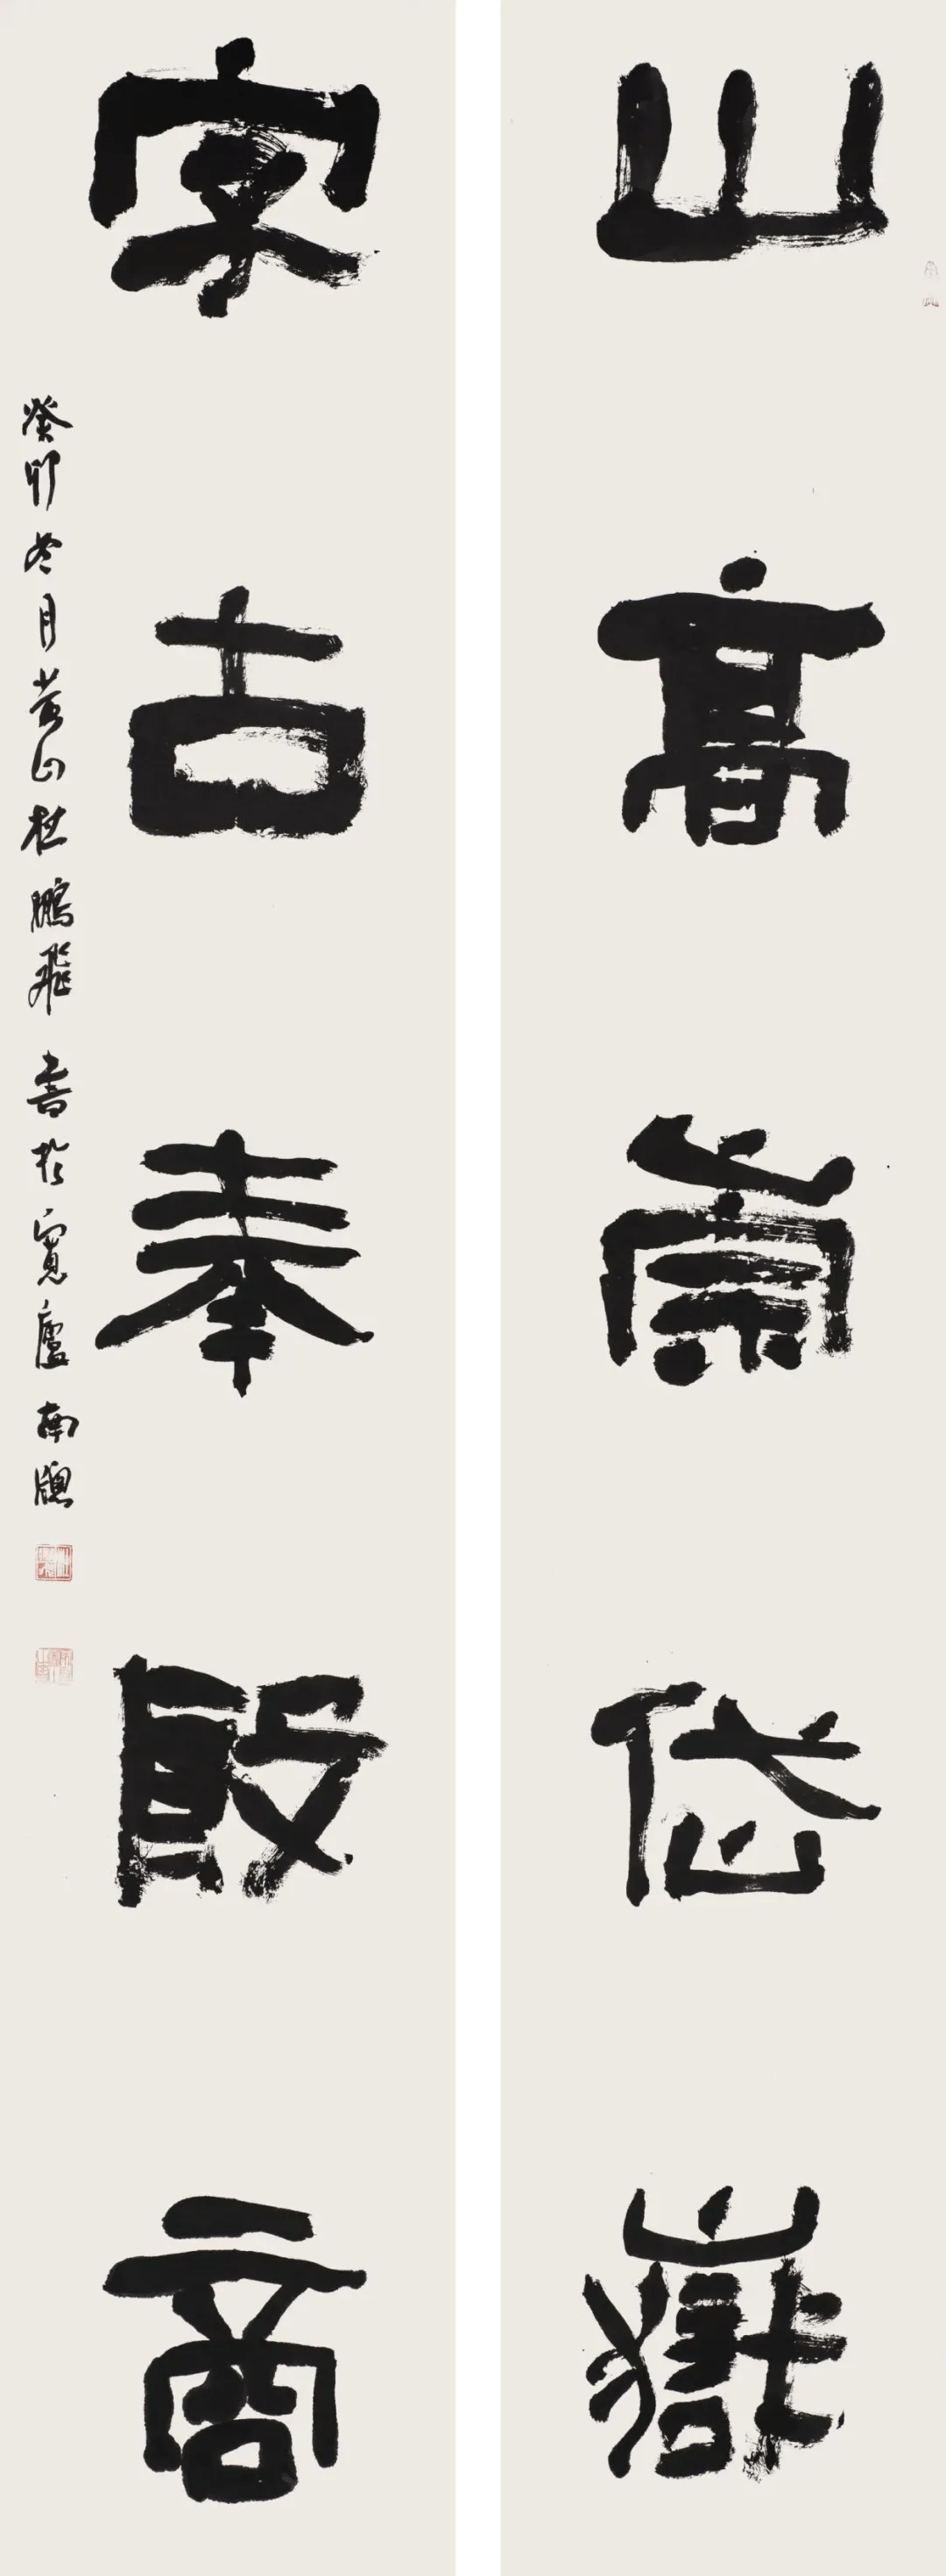 山高崇岱嶽
字古奉殷商
癸卯冬月黄山杜鵬飛書於寬廬南牕